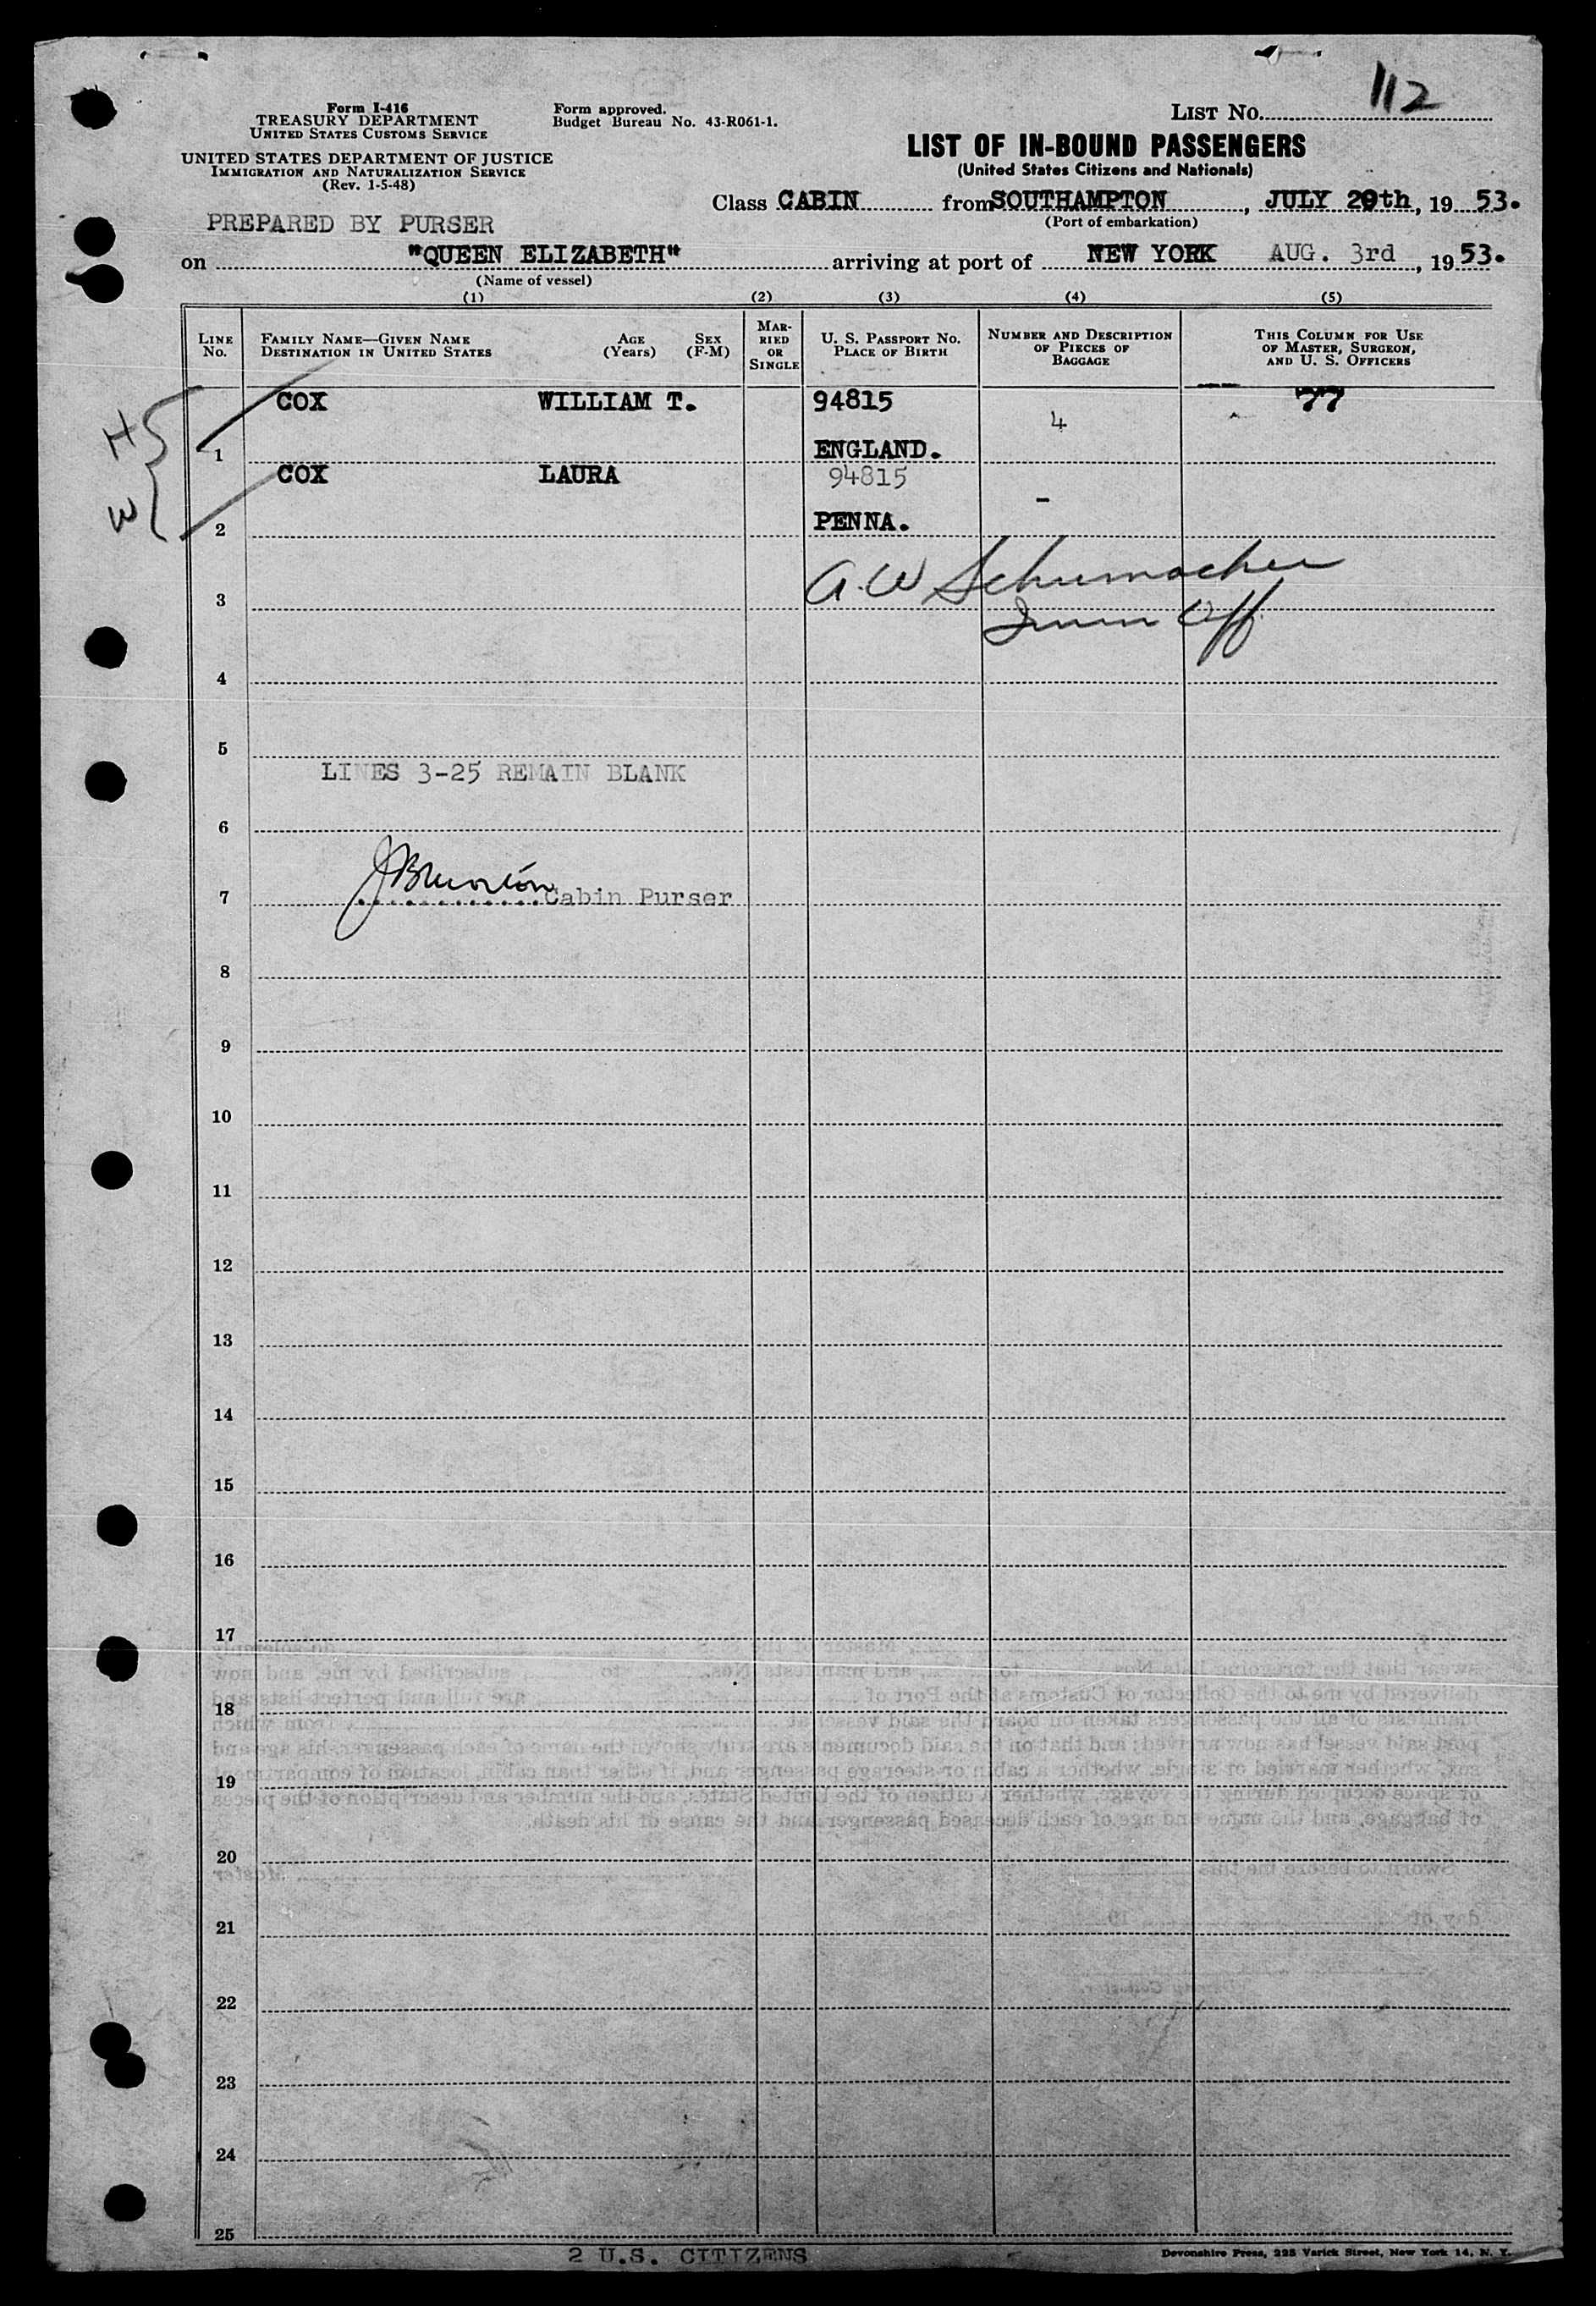 112
Form I-416
TREASURY DEPARTMENT
UNITED STATES CUSTOMS SERVICE
Form approved.
Budget Bureau No. 43-R061-1.
LIST NO.
UNITED STATES DEPARTMENT OF JUSTICE
IMMIGRATION AND NATURALIZATION SERVICE
(Rev. 1-5-48)
LIST OF IN-BOUND PASSENGERS
(United States Citizens and Nationals)
Class CABIN from SOUTHAMPTON, JULY 29th, 19 53.
(Port of embarkation)
PREPARED BY PURSER
on "QUEEN ELIZABETH" arriving at port of NEW YORK AUG. 3rd, 19 53.
(Name of vessel)
(1) (2) (3) (4) (5)
LINE NO.
FAMILY NAME—GIVEN NAME
DESTINATION IN UNITED STATES
AGE (Years)
SEX (F-M)
MARRIED OR SINGLE
U. S. PASSPORT NO.
PLACE OF BIRTH
NUMBER AND DESCRIPTION
OF PIECES OF
BAGGAGE
THIS COLUMN FOR USE
OF MASTER, SURGEON,
AND U. S. OFFICERS
H COX WILLIAM T. 94815 4 77
1 ENGLAND.
W COX LAURA 94815 -
2 PENNA.
A. W Schumacher
3 Imm Off.
4
5
LINES 3-25 REMAIN BLANK
6
7 Cabin Purser
8
9
10
11
12
13
14
15
16
17
18
19
20
21
22
23
24
25
2 U.S. CITIZENS
Devonshire Press, 225 Varick Street, New York 14, N. Y.